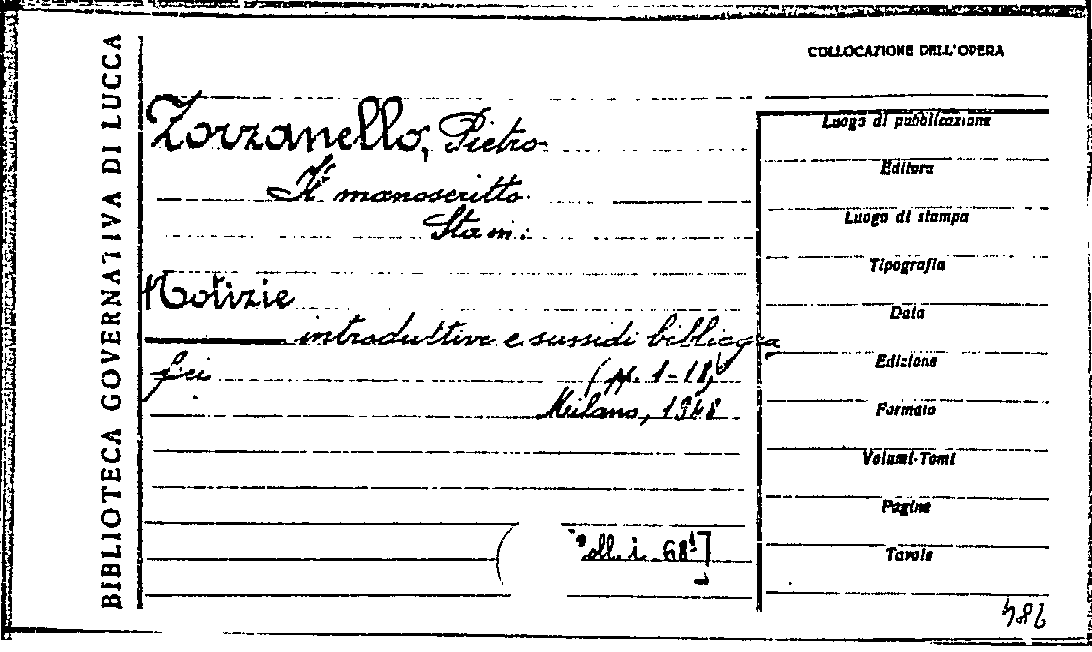 BIBLIOTECA GOVERNATIVA DI LUCCA
COLLOCAZIONE DELL'OPERA
Zorzanello, Pietro
Il manoscritto
Notizie
introduttive e sussidi bibliogra
fici (pp. 1-18)
Milano, 1948
Luogo di pubblicazione
Editore
Luogo di stampa
Tipografia
Data
Edizione
Formato
Volumi-Tomi
Pagine
Tavole